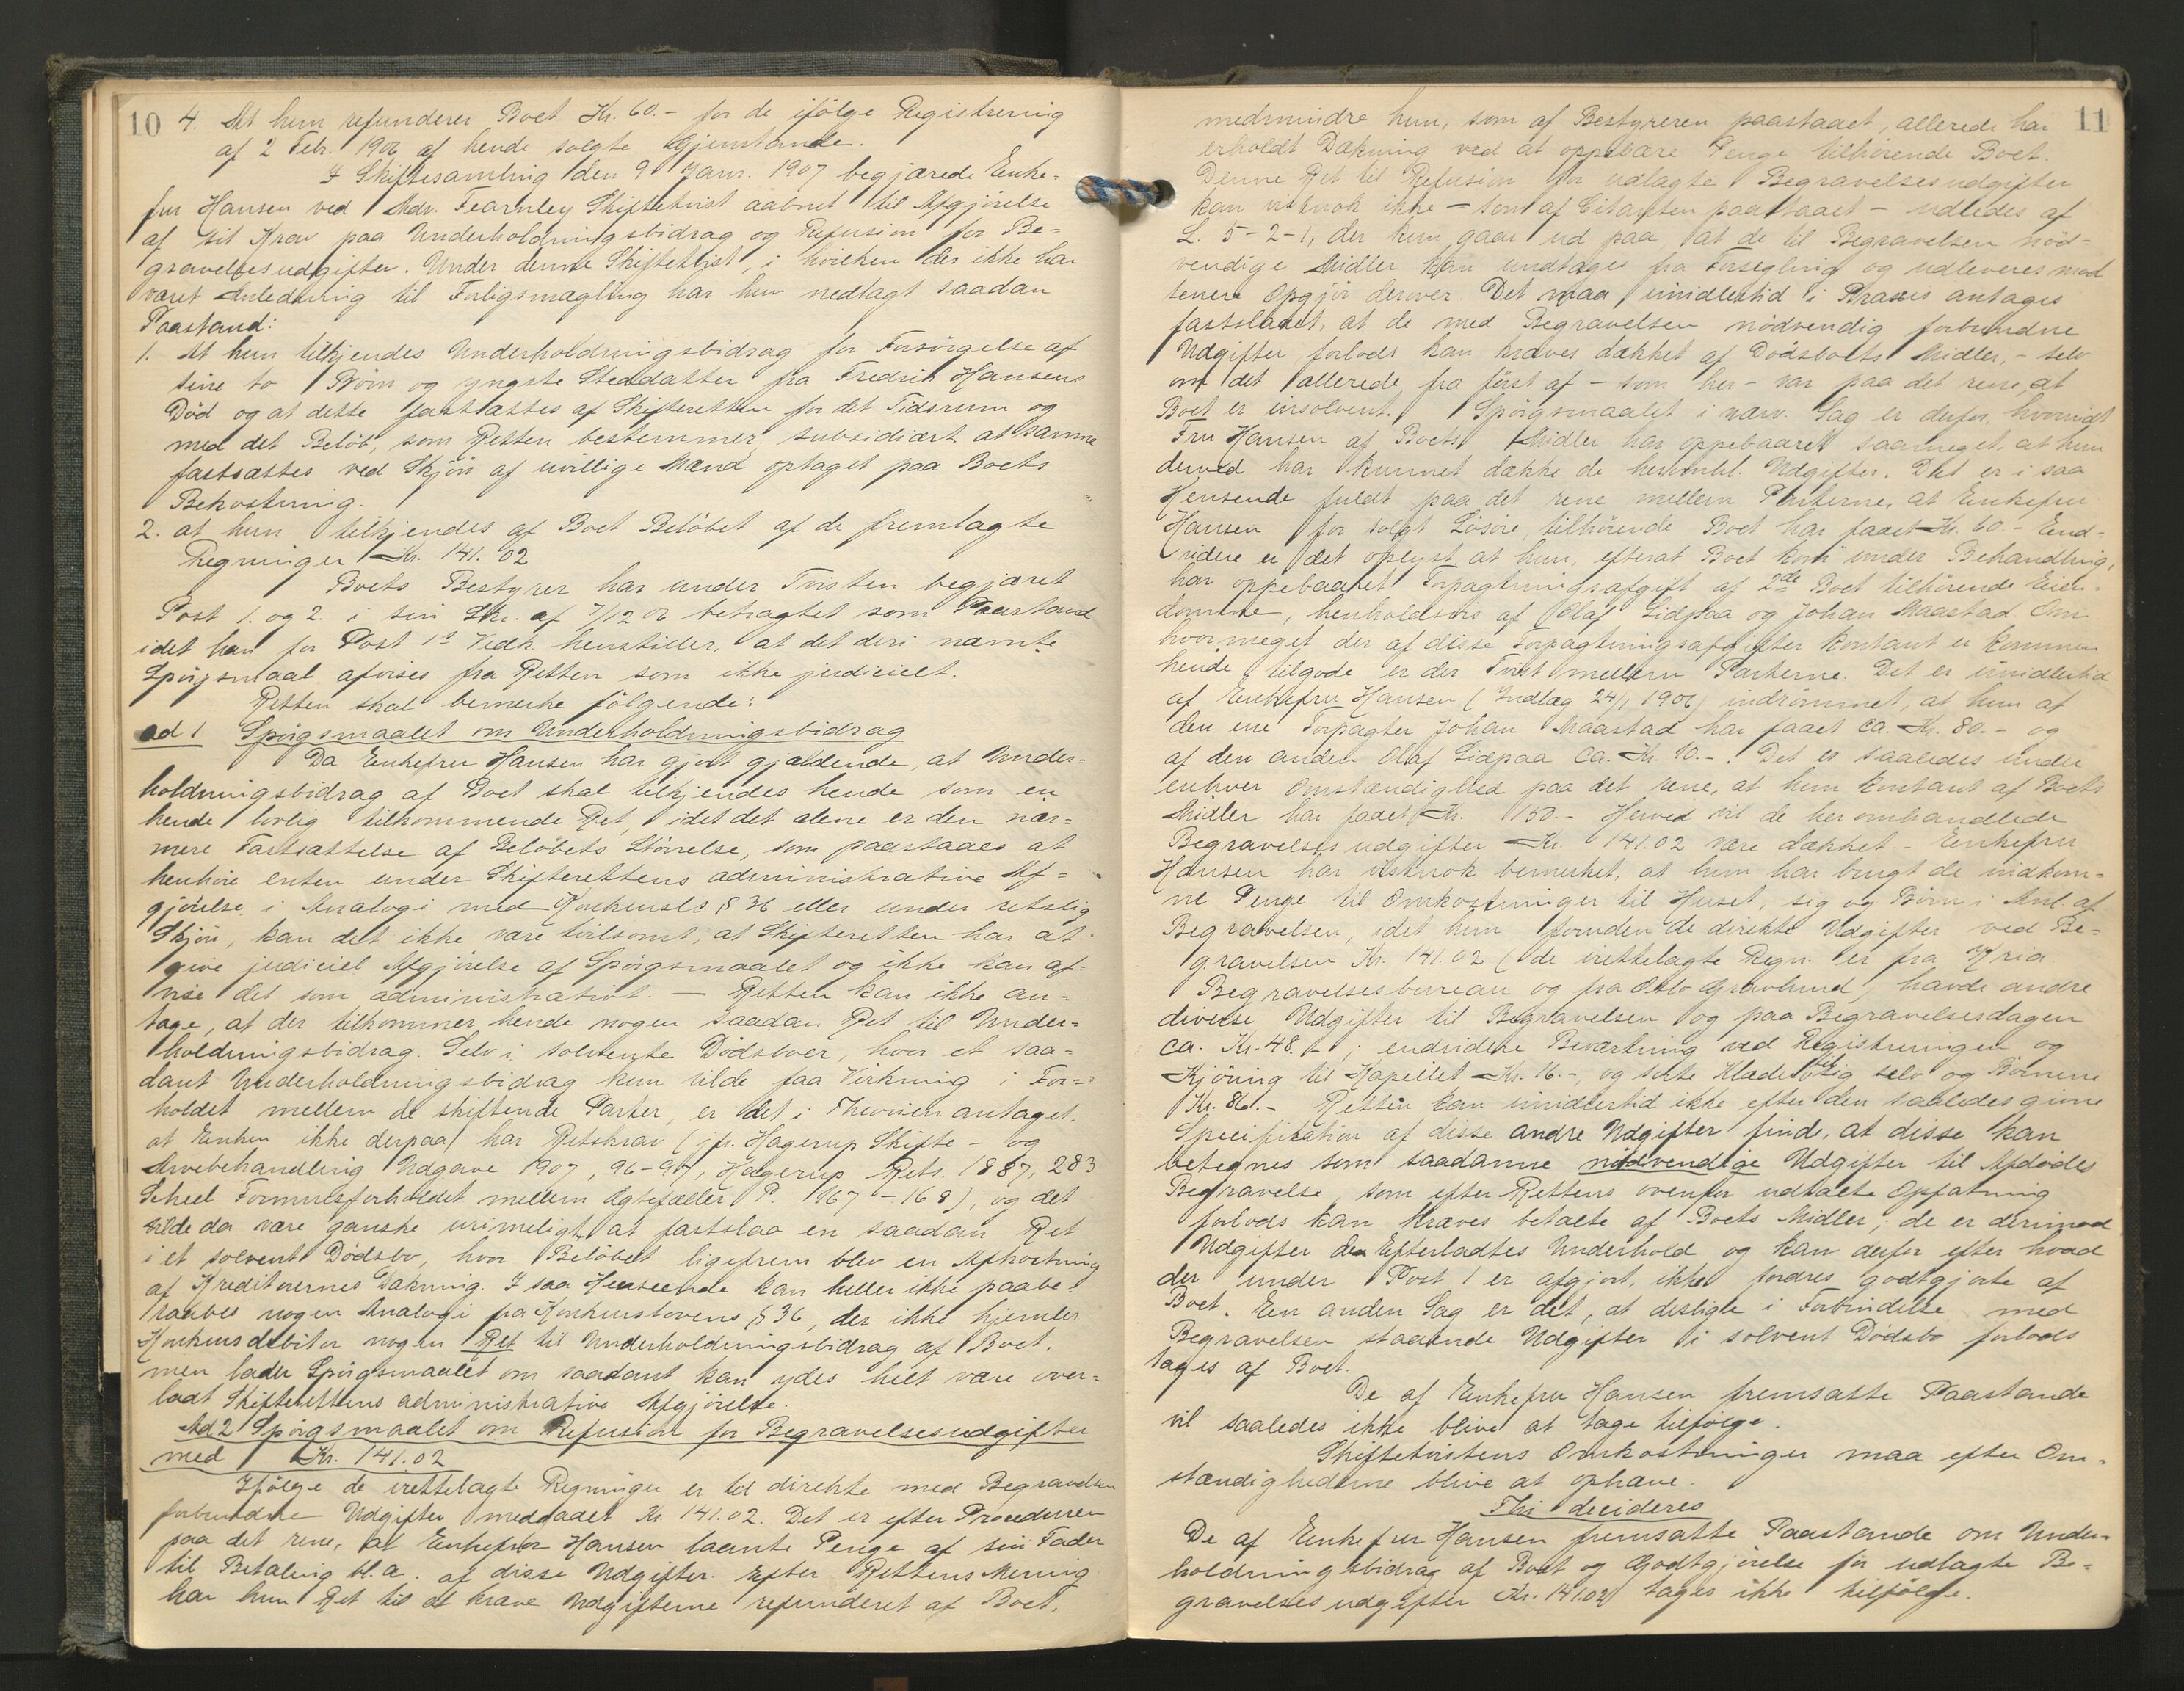 10 4. At hun refunderer Boet Kr. 60.- for de ifölge Registrering
af 2 Febr. 1906 af hende solgte Gjenstande.
I Skiftesamling den 9 Janr. 1907 begjærede Enke-
fru Hansen ved Adv. Fearnley Skiftetvist aabnet til Afgjörelse
af sit Krav paa Underholdningsbidrag og Refusion for Be-
gravelsesudgifter. Under denne Skiftetvist, i hvilken der ikke har
været Anledning til Forligsmægling har hun nedlagt saadan
Paastand:
1. At hun tilkjendes Underholdningsbidrag for Forsörgelse af
sine to Börn og yngste Steddatter fra Fredrik Hansens
Död og at dette fastsættes af Skifteretten for det Tidsrum og
med det Belöb, som Retten bestemmer, subsidiært at samme
fastsættes ved Skjön af uvillige Mænd optaget paa Boets
Bekostning.
2. at hun tilkjendes af Boet Belöbet af de fremlagte
Regninger Kr. 141.02
Boets Bestyrer har under Tvisten begjæret
Post 1. og 2. i sin Skr. af 7/12 06 betragtet som Paastand
idet han for Post 1s Vedk. henstiller, at det deri nævnte
Spörgsmaal afvises fra Retten som ikke judicielt.
Retten skal bemerke fölgende:
ad 1 Spörgsmaalet om Underholdningsbidrag
Da Enkefru Hansen har gjort gjældende, at Under-
holdningsbidrag af Boet skal tilkjendes hende som en
hende lovlig tilkommende Ret, idet det alene er den nær-
mere Fastsættelse af Belöbets Störrelse, som paastaaes at
henhöre enten under Skifterettens administrative Af-
gjörelse i Analogi med Konkursls § 36 eller under retslig
Skjön, kan det ikke være tvilsomt, at Skifteretten har at
give judiciel Afgjörelse af Spörgsmaalet og ikke kan af-
vise det som administrativt. — Retten kan ikke an-
tage, at der tilkommer hende nogen saadan Ret til Under-
holdningsbidrag. Selv i solvente Dödsboer, hvor et saa-
dant Underholdningsbidrag kun vilde faa Virkning i For-
holdet mellem de skiftende Parter, er det i Theorien antaget,
at Enken ikke derpaa har Retskrav (jfr. Hagerup Skifte- og
Arvebehandling Udgave 1907, 96-97, Hagerup Rets. 1887, 283
Scheel Formuesforholdet mellem Ægtefæller P. 167-168), og det
vilde da være ganske urimeligt at fastslaa en saadan Ret
i et solvent Dödsbo, hvor Belöbet ligefrem blev en Afkortning
af Kreditorernes Dækning. I saa Henseende kan heller ikke paabe-
raabes nogen Analogi fra Konkurslovens § 36, der ikke hjemler
Konkursdebitor nogen Ret til Underholdningsbidrag af Boet,
men lader Spörgsmaalet om saadant kan ydes helt være over-
ladt Skifterettens administrative Afgjörelse.
Ad 2 Spörgsmaalet om Refusion for Begravelsesudgifter
med Kr. 141.02
Ifölge de irettelagte Regninger er til direkte med Begravelsen
forbundne Udgifter medgaaet Kr. 141.02. Det er efter Proceduren
paa det rene, at Enkefru Hansen laante Penge af sin Fader
til Betaling bl.a. af disse Udgifter. Efter Rettens Mening
har hun Ret til at kræve Udgifterne refunderet af Boet,
11
medmindre hun, som af Bestyreren paastaaet, allerede har
erholdt Dækning ved at oppebære Penge tilhörende Boet.
Denne Ret til Refusion for udlagte Begravelsesudgifter
kan vistnok ikke – som af Citanten paastaaet – udledes af
L. 5-2-1, der kun gaar ud paa, at de til Begravelsen nöd-
vendige Midler kan undtages fra Forsegling og udleveres mod
senere Opgjör derover. Det maa imidlertid i Praxis antages
fastslaaet, at de med Begravelsen nödvendig forbundne
Udgifter forlods kan kræves dækket af Dödsboets Midler, – selv
om det allerede fra först af – som her – var paa det rene, at
Boet er insolvent. Spörgsmaalet i nærv. Sag er derfor, hvorvidt
Fru Hansen af Boets Midler har oppebaaret saameget, at hun
derved har kunnet dække de heromhl. Udgifter. Det er i saa
Henseende fuldt paa det rene mellem Parterne, at Enkefru
Hansen for solgt Lösöre tilhörende Boet har faaet Kr. 60.- End-
videre er det oplyst at hun, efterat Boet kom under Behandling,
har oppebaaret Forpagtningsafgift af 2de Boet tilhörende Eien-
domme, henholdsvis af Olaf Lidpaa og Johan Maastad. Om
hvor meget der af disse Forpagtningsafgifter kontant er kommen
hende tilgode er der Tvist mellem Parterne. Det er imidlertid
af Enkefru Hansen (Indlæg 24/1 1906) indrömmet, at hun af
den ene Forpagter Johan Maastad har faaet ca. Kr. 80.- og
af den anden Olaf Lidpaa ca. Kr. 10.-. Det er saaledes under
enhver Omstændighed paa det rene, at hun kontant af Boets
Midler har faaet Kr. 150.- Herved vil de her omhandlede
Begravelsesudgifter Kr. 141.02 være dækket – Enkefru
Hansen har vistnok bemerket, at hun har brugt de indkom-
ne Penge til Omkostninger til Huset, sig og Börn i Anl. af
Begravelsen, idet hun foruden de direkte Udgifter ved Be-
gravelsen Kr. 141.02 (de irettelagte Regn. er fra Kria.
Begravelsesbureau og fra Oslo Gravlund) havde andre
diverse Udgifter til Begravelsen og paa Begravelsesdagen
ca. Kr. 48.-; endvidere Beværtning ved Registreringen og
Kjöring til Kapellet Kr. 16.-, og sorte Klæder til sig selv og Börnene
Kr. 86.- Retten kan imidlertid ikke efter den saaledes givne
Specifikation af disse andre Udgifter finde, at disse kan
betegnes som saadanne nödvendige Udgifter til Afdödes
Begravelse, som efter Rettens ovenfor udtalte Opfatning
forlods kan kræves betalte af Boets Midler; de er derimod
Udgifter til Efterladtes Underhold og kan derfor efter hvad
der under Post 1 er afgjort, ikke fordres godtgjorte af
Boet. En anden Sag er det, at desligte i Forbindelse med
Begravelsen staaende Udgifter i solvent Dödsbo forlods
tages af Boet.
De af Enkefru Hansen fremsatte Paastande
vil saaledes ikke blive at tage tilfölge.
Skiftetvistens Omkostninger maa efter Om-
stændighederne blive at ophæve.
Thi decideres
De af Enkefru Hansen fremsatte Paastande om Under-
holdningsbidrag af Boet og Godtgjörelse for udlagte Be-
gravelsesudgifter Kr. 141.02 tages ikke tilfölge.